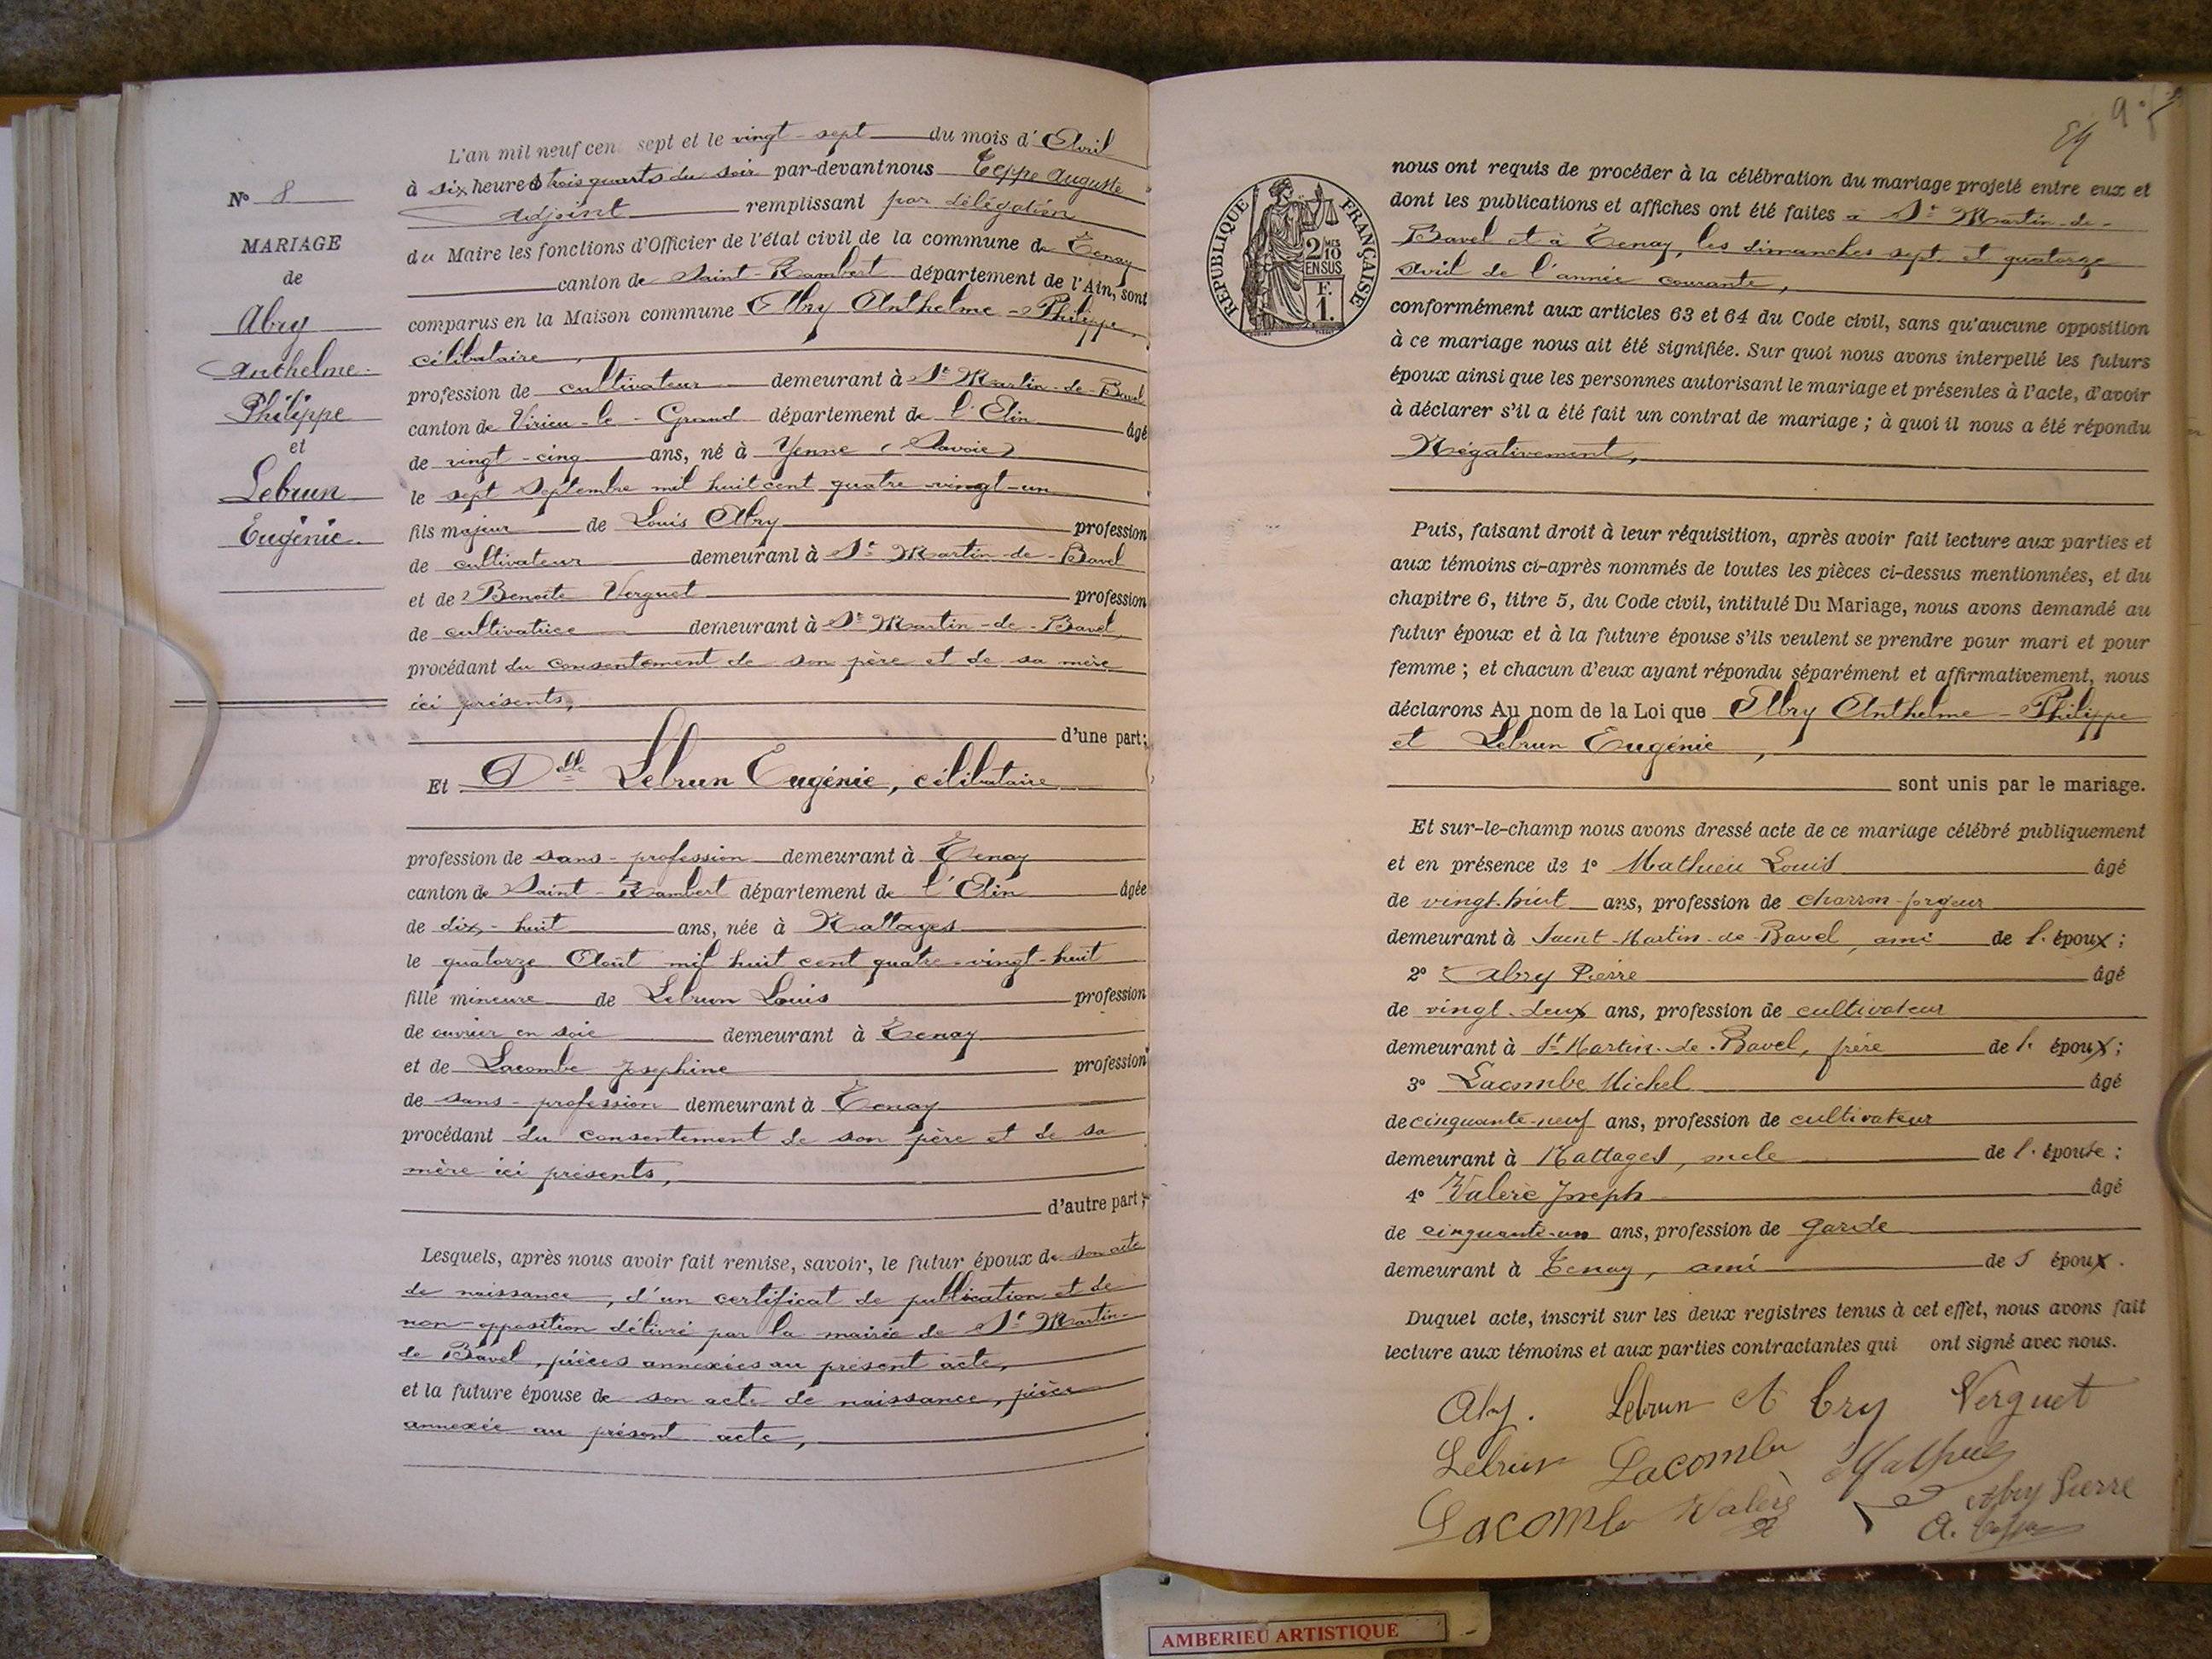 L'an mil neuf cen sept et le vingt-sept du mois d'Avril
à six heures trois quarts du soir par-devant nous Teppe Auguste
Adjoint remplissant par délégation
du Maire les fonctions d'Officier de l'état civil de la commune de Tenay
canton de Saint-Rambert département de l'Ain, sont
comparus en la Maison commune Abry Anthelme-Philippe,
célibataire,
profession de cultivateur demeurant à St Martin-de-Bavel
canton de Virieu-le-Grand département de l'Ain âgé
de vingt-cinq ans, né à Yenne (Savoie)
le sept Septembre mil huit cent quatre-vingt-un
fils majeur de Louis Abry profession
de cultivateur demeurant à St Martin-de-Bavel
et de Benoîte Verguet profession
de cultivatrice demeurant à St Martin-de-Bavel,
procédant du consentement de son père et de sa mère
ici présents,
d'une part;
Et Delle Lebrun Eugénie, célibataire
profession de sans-profession demeurant à Tenay
canton de Saint-Rambert département de l'Ain âgée
de dix-huit ans, née à Nattages
le quatorze Août mil huit cent quatre-vingt-huit
fille mineure de Lebrun Louis profession
de ouvrier en soie demeurant à Tenay
et de Lacombe Joséphine profession
de sans-profession demeurant à Tenay
procédant du consentement de son père et de sa
mère ici présents,
d'autre part;
Lesquels, après nous avoir fait remise, savoir, le futur époux de son acte
de naissance, d'un certificat de publication et de
non-opposition délivré par la mairie de St Martin-
de Bavel, pièces annexées au présent acte,
et la future épouse de son acte de naissance, pièce
annexée au présent acte,
N° 8
MARIAGE
de
Abry
Anthelme-
Philippe
et
Lebrun
Eugénie.
RÉPUBLIQUE FRANÇAISE
2 MES
10
EN SUS
F.
1.
nous ont requis de procéder à la célébration du mariage projeté entre eux et
dont les publications et affiches ont été faites à St Martin-de-
Bavel et à Tenay, les dimanches sept et quatorze
avril de l'année courante,
conformément aux articles 63 et 64 du Code civil, sans qu'aucune opposition
à ce mariage nous ait été signifiée. Sur quoi nous avons interpellé les futurs
époux ainsi que les personnes autorisant le mariage et présentes à l'acte, d'avoir
à déclarer s'il a été fait un contrat de mariage ; à quoi il nous a été répondu
Négativement,
Puis, faisant droit à leur réquisition, après avoir fait lecture aux parties et
aux témoins ci-après nommés de toutes les pièces ci-dessus mentionnées, et du
chapitre 6, titre 5, du Code civil, intitulé Du Mariage, nous avons demandé au
futur époux et à la future épouse s'ils veulent se prendre pour mari et pour
femme ; et chacun d'eux ayant répondu séparément et affirmativement, nous
déclarons Au nom de la Loi que Abry Anthelme-Philippe
et Lebrun Eugénie,
sont unis par le mariage.
Et sur-le-champ nous avons dressé acte de ce mariage célébré publiquement
et en présence de 1° Mathieu Louis âgé
de vingt-huit ans, profession de charron-forgeur
demeurant à Saint-Martin-de-Bavel, ami de l'époux ;
2° Abry Pierre âgé
de vingt-deux ans, profession de cultivateur
demeurant à St Martin-de-Bavel, frère de l'époux ;
3° Lacombe Michel âgé
de cinquante-neuf ans, profession de cultivateur
demeurant à Nattages, oncle de l'épouse ;
4° Valère Joseph âgé
de cinquante-un ans, profession de garde
demeurant à Tenay, ami de l'époux.
Duquel acte, inscrit sur les deux registres tenus à cet effet, nous avons fait
lecture aux témoins et aux parties contractantes qui ont signé avec nous.
Abry. Lebrun Abry Verguet
Lebrun Lacombe Mathieu
Lacombe Valère Abry Pierre
A. Teppe
AMBERIEU ARTISTIQUE